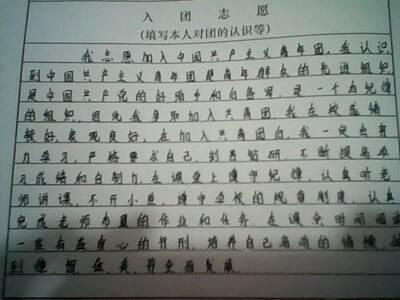 入团志愿
(填写本人对团的认识等)
我志愿加入中国共产主义青年团，我认识
到中国共产主义青年团是青年群众的先进组织
是中国共产党的好助手和后备军，是一个有纪律
的组织，因此我争取加入共青团，我在校成绩
较好，表现良好，在加入共青团后，我一定会有
力学习，严格要求自己，刻苦钻研，不断提高学
习成绩和自制力，在课堂上遵守纪律，认真听老
师讲课，不开小差，遵守学校的规章制度，认真
完成老师布置的作业和任务，在课余时间阅读
一些有益身心的书刊，培养自己高尚的情操，做
到德，智，体，美，劳全面发展